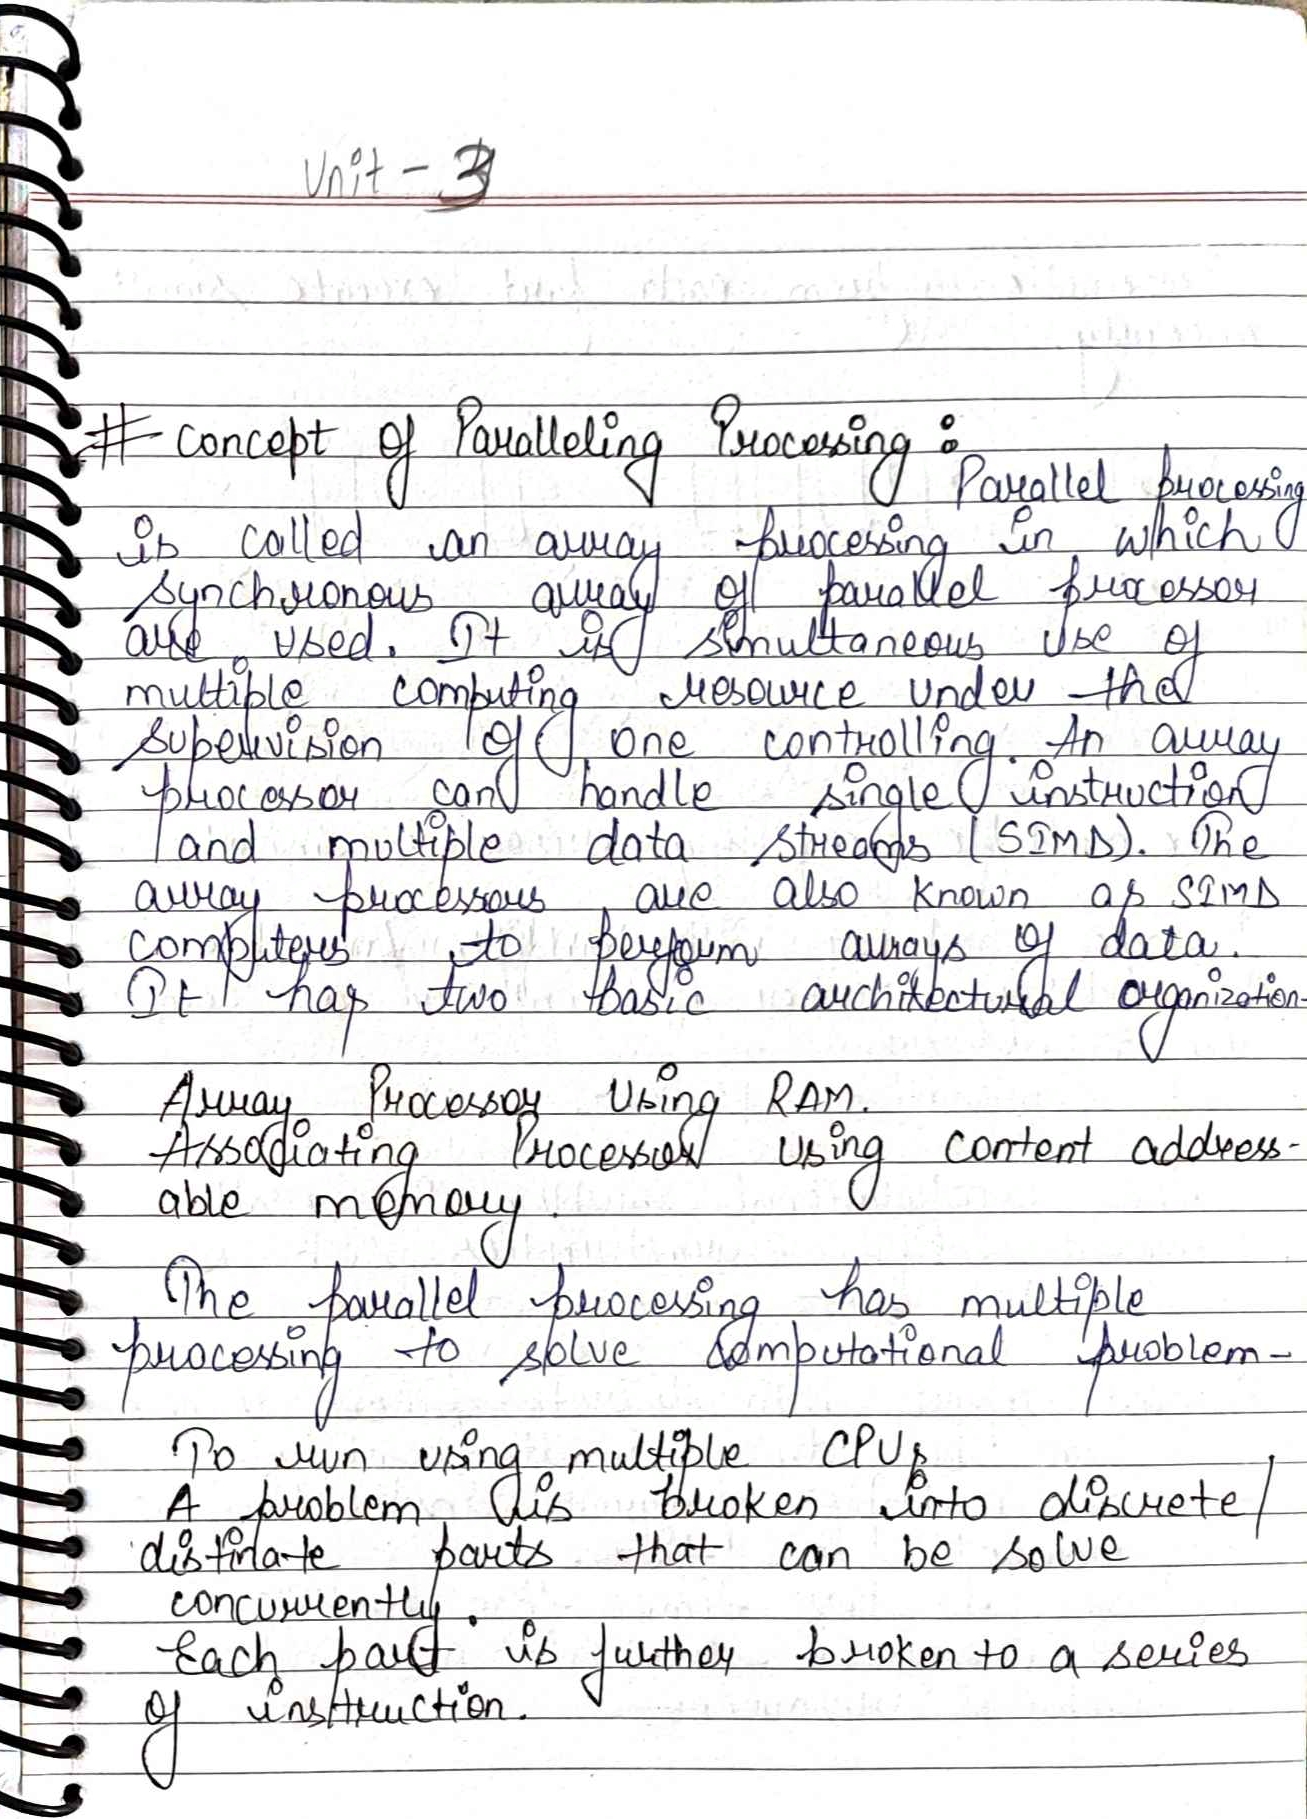 Unit - 3
# concept of Paralleling Processing :
Parallel processing
is called an array processing in which
synchronous array of parallel processor
are used. It is simultaneous use of
multiple computing resource under the
supervision of one controlling. An array
processor can handle single instruction
and multiple data streams (SIMD). The
array processors are also known as SIMD
computers to perform arrays of data.
It has two basic architectural organization-
Array Processor Using RAM.
Associating Processor using content address-
able memory.
The parallel processing has multiple
processing to solve computational problem-
To run using multiple CPUs
A problem is broken into discrete/
distinate parts that can be solve
concurrently.
Each part is further broken to a series
of instruction.